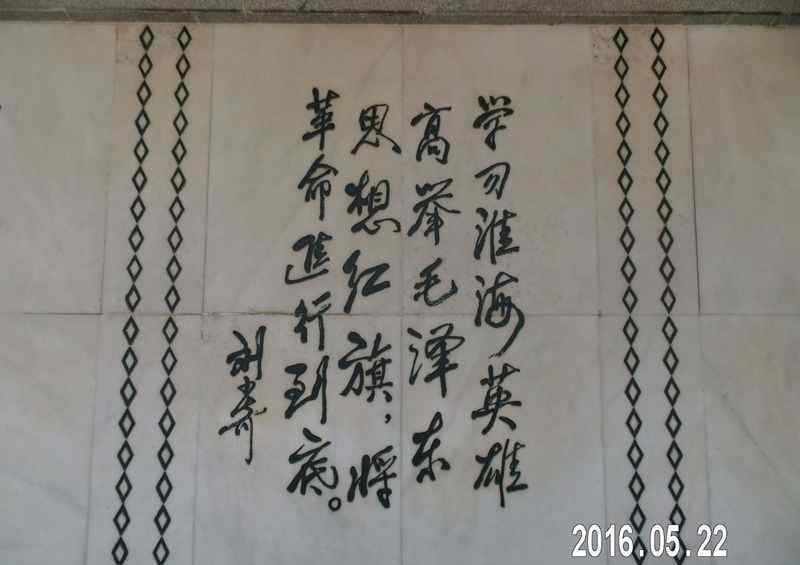 学习淮海英雄
高举毛泽东
思想红旗,将
革命進行到底。
刘少奇
2016.05.22